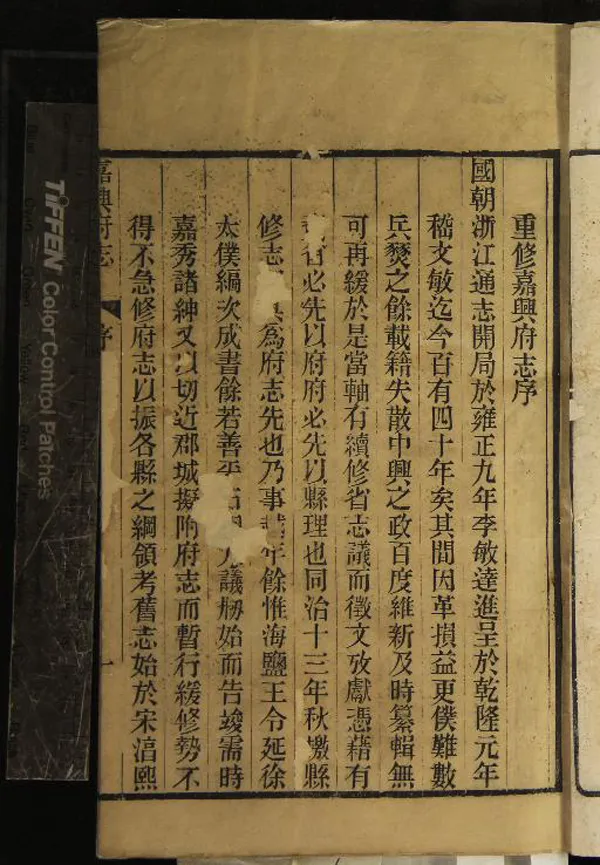 重修嘉興府志序
國朝浙江通志開局於雍正九年李敏達進呈於乾隆元年
嵇文敏迄今百有四十年矣其間因革損益更僕難數
兵燹之餘載籍失散中興之政百度維新及時纂輯無
可再緩於是當軸有續修省志議而徵文攷獻憑藉有
省必先以府府必先以縣理也同治十三年秋檄縣
修志為府志先也乃事年餘惟海鹽王令延徐
太僕編次成書餘若善平議剏始而告竣需時
嘉秀諸紳又以切近郡城擬附府志而暫行緩修勢不
得不急修府志以振各縣之綱領考舊志始於宋湻熙
嘉興府志 序 一
TIFFEN Color Control Patches